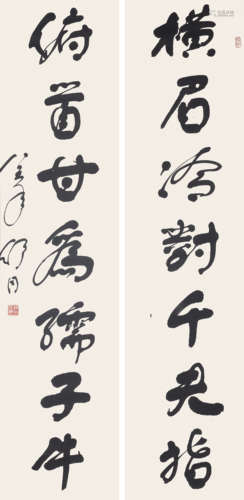 橫眉冷對千夫指
俯首甘爲孺子牛
舒同